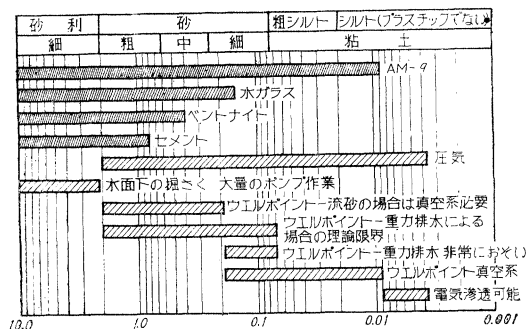 砂利 砂 粗シルト シルト(プラスチックでない)
細 粗 中 細 粘土
AM-9
水ガラス
ベントナイト
セメント
圧気
水面下の掘さく 大量のポンプ作業
ウエルポイントー流砂の場合は真空系必要
ウエルポイントー重力排水による
場合の理論限界
ウエルポイントー重力排水 非常におそい
ウエルポイント真空系
電気滲透可能
10.0 1.0 0.1 0.01 0.001